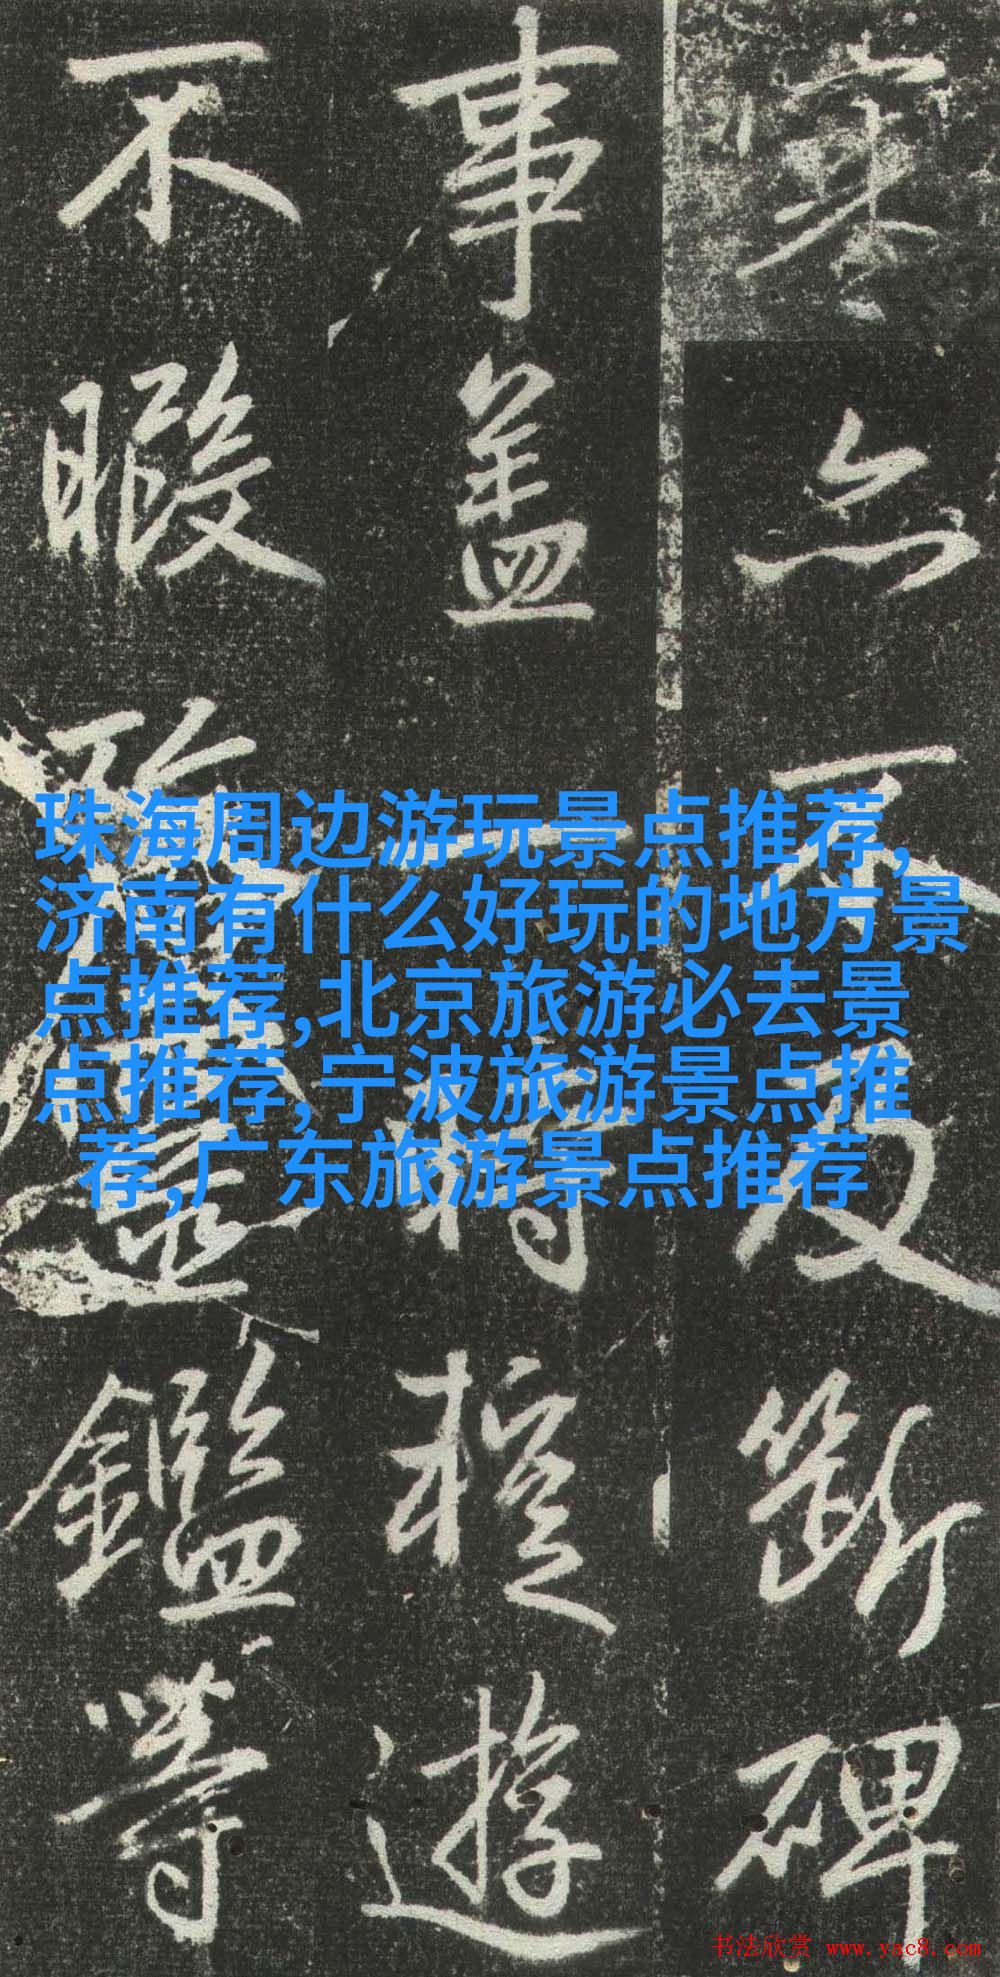 亦不及斷碑
事盖
遊
不暇
鑑等
珠海周边游玩景点推荐,
济南有什么好玩的地方景
点推荐,北京旅游必去景
点推荐,宁波旅游景点推
荐,广东旅游景点推荐
书法欣赏 www.yac8.com